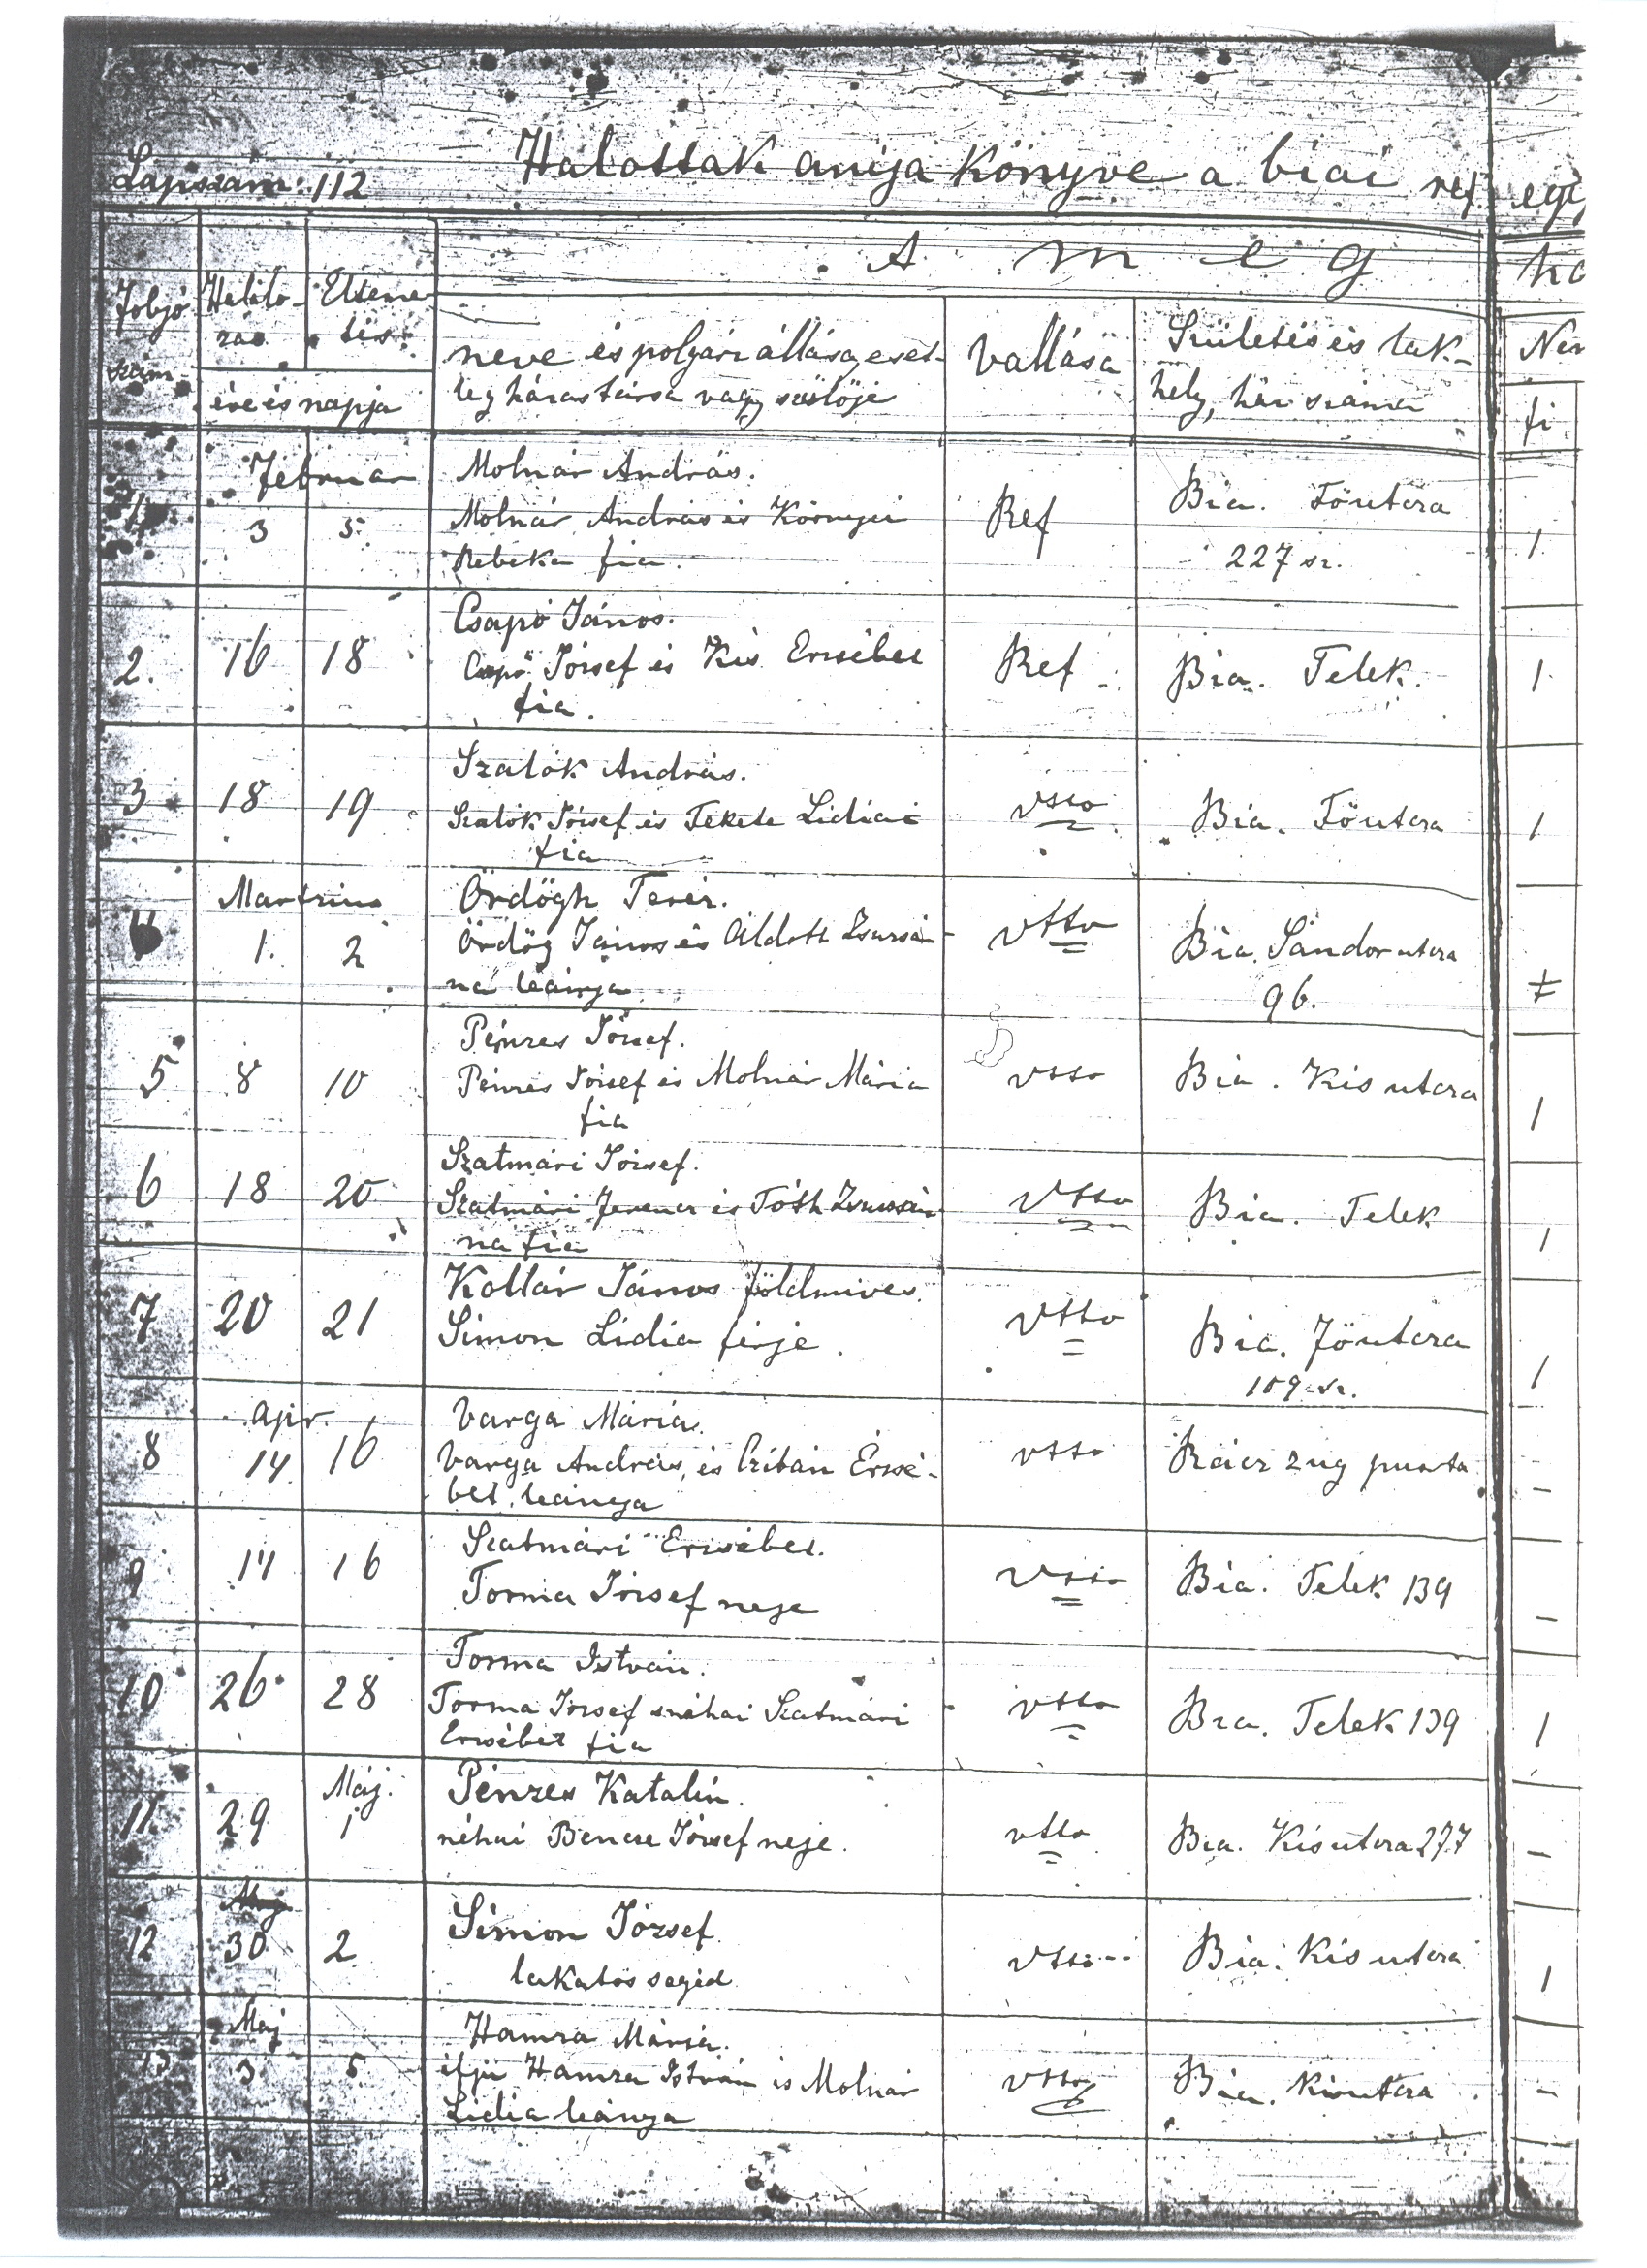 Lapszám: 112
Halottak anija Könyve a biai ref. egy
A m e g
Folyó szám
Halálo- zás
Elteme- tés
éve és napja
neve és polgári állása, eset-
leg házastársa vagy szülője
Vallása
Születés és lak-
hely, ház száma
fi
Februar
Molnár András.
1. 3 5 Molnár András és Környei Ref Bia. Főutcza 1
Rebeka fia. 227 sz.
Csapó János.
2. 16 18 Csapó József és Kis Erzsébet Ref Bia. Telek. 1
fia.
Szalók András.
3 18 19 Szalók József és Fekete Lidiai vtto Bia. Főutcza 1
fia
Martzius Ördögh Teréz.
4 1. 2 Ördög János és Áldott Zsuzsán- vtto Bia. Sándor utcza
ná leánya 96.
Pénzes József.
5 8 10 Pénzes József és Molnár Mária vtto Bia. Kis utcza 1
fia
Szatmári József.
6 18 20 Szatmári Ferencz és Tóth Zsuzsán vtto Bia. Telek 1
na fia
Kollár János földmives.
7 20 21 Simon Lidia férje. vtto Bia. Főutcza 1
109 sz.
Apr. Varga Mária.
8 14 16 Varga András, és Czibán Erzsé- vtto Ráczzug puszta -
bet, leánya
Szatmári Erzsébet.
9 14 16 Torma József neje vtto Bia. Telek 139 -
Torma István.
10 26 28 Torma József s néhai Szatmári vtto Bia. Telek 139 1
Erzsébet fia
Máj. Pénzes Katalin.
11. 29 1 néhai Bencze József neje. vtto Bia. Kis utcza 277 -
Simon József
12 30 2. lakatos segéd vtto Bia. Kis utcza 1
Máj Hamza Mária.
13 3 5 ifjú Hamza István és Molnár vtto Bia. Kisutcza -
Lidia leánya